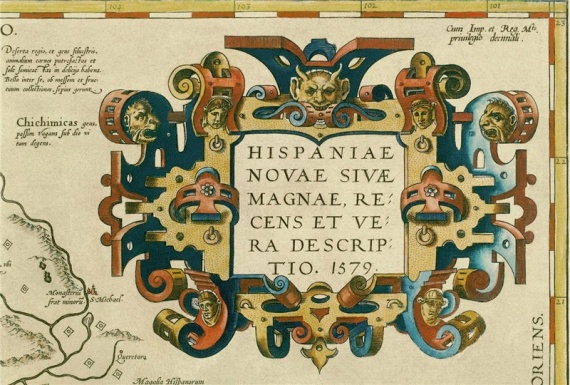 104 103 102 101
23
O.
Cum Imp. et Reg. M.tis
privilegio decennali.
Deserta regio, et gens siluestris,
animalium carnes putrefactas et
sole
Bella inter se, ob messem et fruc-
tuum collectiones, sepius gerunt.
Chichimicas gens,
passim vagans sub dio vi
tam digens.
HISPANIAE
NOVAE SIVÆ
MAGNAE, RE-
CENS ET VE-
RA DESCRIP-
TIO. 1579.
22
21
Monasteriũ
frat minorũ
S. Michael.
Queretaru
Hispanorum
ORIENS.